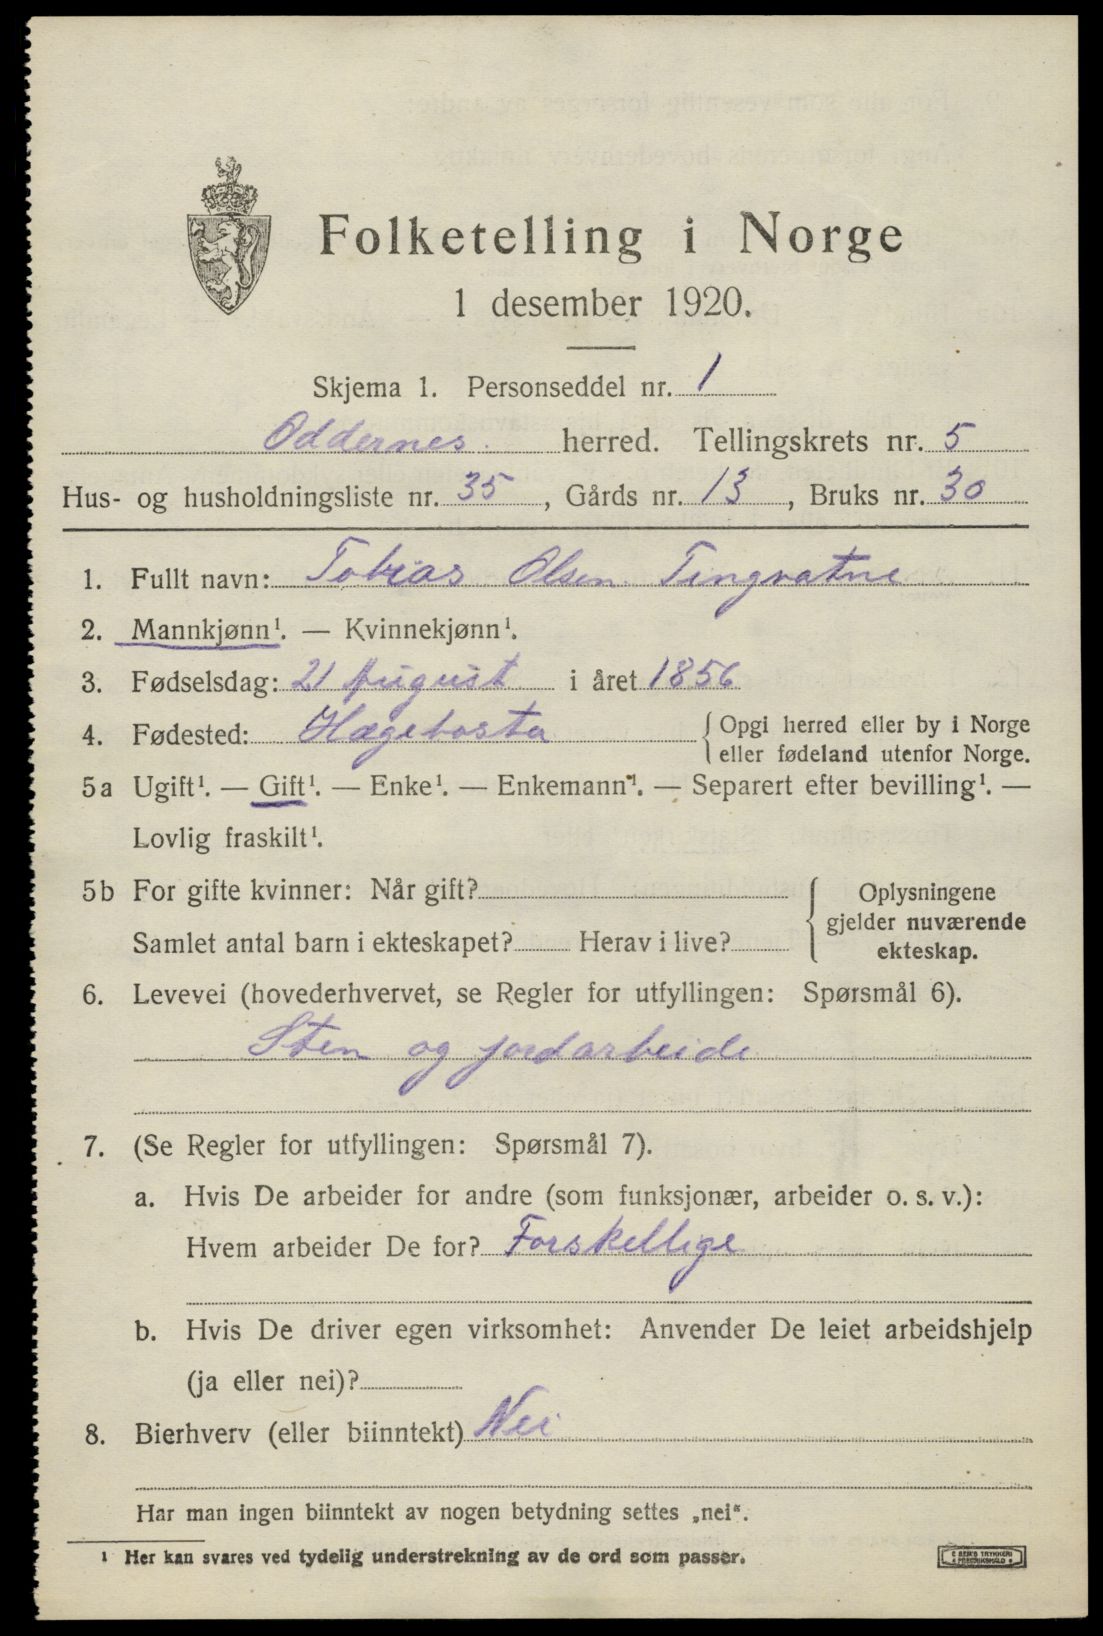 Folketelling i Norge
1 desember 1920.
Skjema 1. Personseddel nr. 1
Oddernes herred. Tellingskrets nr. 5
Hus- og husholdningsliste nr. 35, Gårds nr. 13, Bruks nr. 30
1. Fullt navn: Tobias Olsen Tingvatne
2. Mannkjønn¹. — Kvinnekjønn¹.
3. Fødselsdag: 21 August i året 1856
4. Fødested: Hægebosta { Opgi herred eller by i Norge
eller fødeland utenfor Norge.
5a Ugift¹. — Gift¹. — Enke¹. — Enkemann¹. — Separert efter bevilling¹. —
Lovlig fraskilt¹.
5b For gifte kvinner: Når gift? { Oplysningene
gjelder nuværende
Samlet antal barn i ekteskapet? Herav i live? ekteskap.
6. Levevei (hovederhvervet, se Regler for utfyllingen: Spørsmål 6).
Sten og jordarbeide
7. (Se Regler for utfyllingen: Spørsmål 7).
a. Hvis De arbeider for andre (som funksjonær, arbeider o. s. v.):
Hvem arbeider De for? Forskellige
b. Hvis De driver egen virksomhet: Anvender De leiet arbeidshjelp
(ja eller nei)?
8. Bierhverv (eller biinntekt) Nei
Har man ingen biinntekt av nogen betydning settes „nei“.
¹ Her kan svares ved tydelig understrekning av de ord som passer.